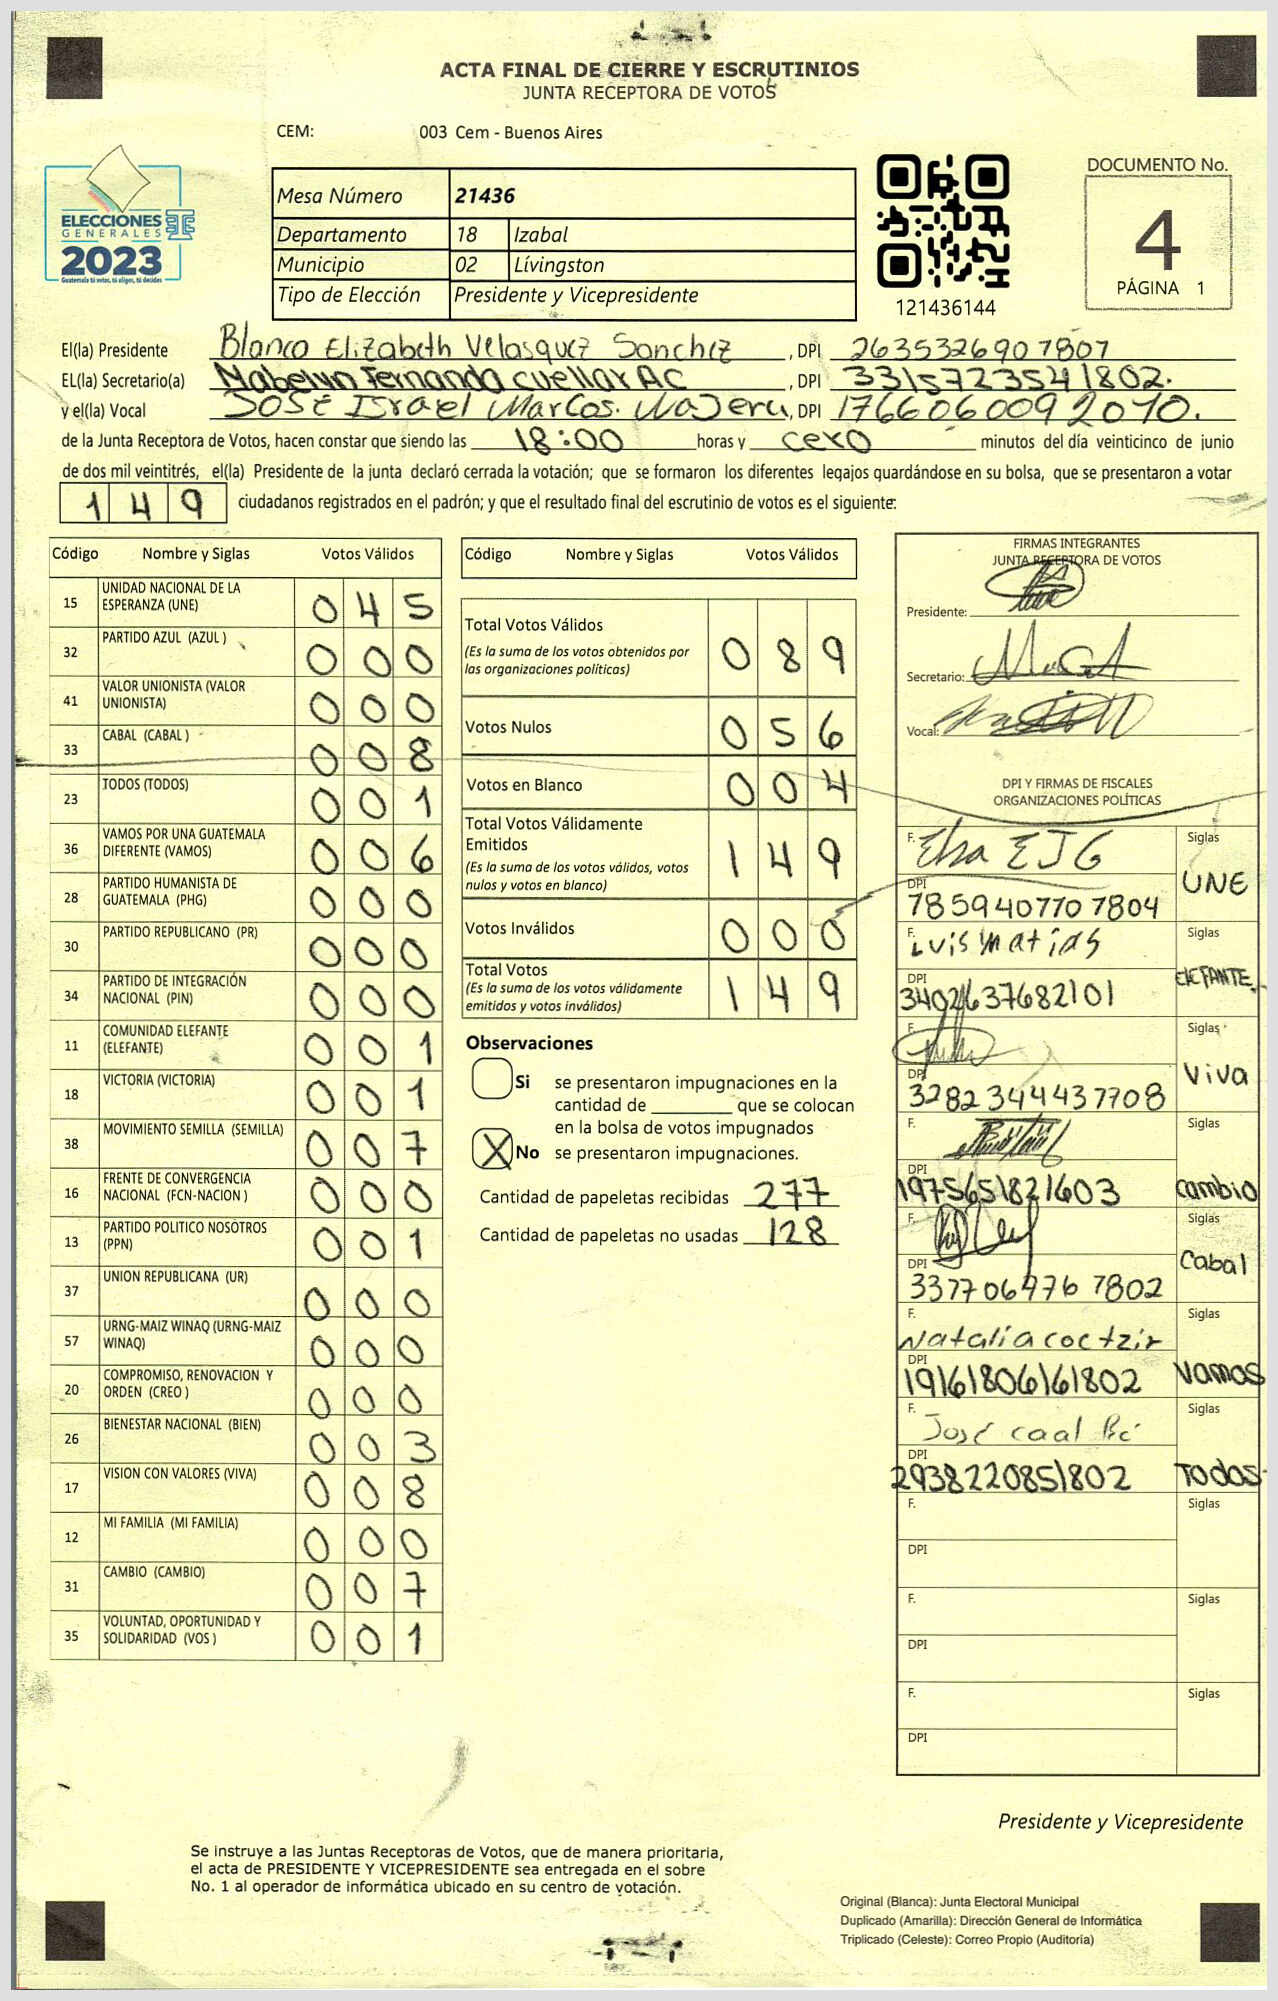 ACTA FINAL DE CIERRE Y ESCRUTINIOS
JUNTA RECEPTORA DE VOTOS
CEM: 003 Cem - Buenos Aires
ELECCIONES
GENERALES
2023
Guatemala tú votas, tú eliges, tú decides
Mesa Número 21436
Departamento 18 Izabal
Municipio 02 Lívingston
Tipo de Elección Presidente y Vicepresidente
121436144
DOCUMENTO No.
4
PÁGINA 1
El(la) Presidente Blanca Elizabeth Velasquez Sanchez, DPI 2635326907807
EL(la) Secretario(a) Mabelyn Fernanda Cuellar AC, DPI 3315723541802.
y el(la) Vocal José Israel Marcos. Najera, DPI 1766060092010.
de la Junta Receptora de Votos, hacen constar que siendo las 18:00 horas y cero minutos del día veinticinco de junio
de dos mil veintitrés, el(la) Presidente de la junta declaró cerrada la votación; que se formaron los diferentes legajos guardándose en su bolsa, que se presentaron a votar
149 ciudadanos registrados en el padrón; y que el resultado final del escrutinio de votos es el siguiente:
Código Nombre y Siglas Votos Válidos
15 UNIDAD NACIONAL DE LA ESPERANZA (UNE) 045
32 PARTIDO AZUL (AZUL ) 000
41 VALOR UNIONISTA (VALOR UNIONISTA) 000
33 CABAL (CABAL ) 008
23 TODOS (TODOS) 001
36 VAMOS POR UNA GUATEMALA DIFERENTE (VAMOS) 006
28 PARTIDO HUMANISTA DE GUATEMALA (PHG) 000
30 PARTIDO REPUBLICANO (PR) 000
34 PARTIDO DE INTEGRACIÓN NACIONAL (PIN) 000
11 COMUNIDAD ELEFANTE (ELEFANTE) 001
18 VICTORIA (VICTORIA) 001
38 MOVIMIENTO SEMILLA (SEMILLA) 007
16 FRENTE DE CONVERGENCIA NACIONAL (FCN-NACION ) 000
13 PARTIDO POLITICO NOSOTROS (PPN) 001
37 UNION REPUBLICANA (UR) 000
57 URNG-MAIZ WINAQ (URNG-MAIZ WINAQ) 000
20 COMPROMISO, RENOVACION Y ORDEN (CREO ) 000
26 BIENESTAR NACIONAL (BIEN) 003
17 VISION CON VALORES (VIVA) 008
12 MI FAMILIA (MI FAMILIA) 000
31 CAMBIO (CAMBIO) 007
35 VOLUNTAD, OPORTUNIDAD Y SOLIDARIDAD (VOS ) 001
Código Nombre y Siglas Votos Válidos
Total Votos Válidos 089
(Es la suma de los votos obtenidos por
las organizaciones políticas)
Votos Nulos 056
Votos en Blanco 004
Total Votos Válidamente
Emitidos 149
(Es la suma de los votos válidos, votos
nulos y votos en blanco)
Votos Inválidos 000
Total Votos 149
(Es la suma de los votos válidamente
emitidos y votos inválidos)
Observaciones
Si se presentaron impugnaciones en la
cantidad de ________ que se colocan
en la bolsa de votos impugnados
X No se presentaron impugnaciones.
Cantidad de papeletas recibidas 277
Cantidad de papeletas no usadas 128
FIRMAS INTEGRANTES
JUNTA RECEPTORA DE VOTOS
Presidente:
Secretario:
Vocal:
DPI Y FIRMAS DE FISCALES
ORGANIZACIONES POLÍTICAS
F. Elsa EJG Siglas
DPI 7859407707804 UNE
F. Luis matias Siglas
DPI 3402637682101 ELEFANTE
F. Siglas
DPI 3282344437708 Viva
F. Siglas
DPI 1975651821603 cambio
F. Siglas
DPI 3377064767802 Cabal
F. Natalia coc tzir Siglas
DPI 19161806161802 Vamos
F. José caal Siglas
DPI 2938220851802 TODOS
F. Siglas
DPI
F. Siglas
DPI
F. Siglas
DPI
Presidente y Vicepresidente
Se instruye a las Juntas Receptoras de Votos, que de manera prioritaria,
el acta de PRESIDENTE Y VICEPRESIDENTE sea entregada en el sobre
No. 1 al operador de informática ubicado en su centro de votación.
Original (Blanca): Junta Electoral Municipal
Duplicado (Amarilla): Dirección General de Informática
Triplicado (Celeste): Correo Propio (Auditoría)